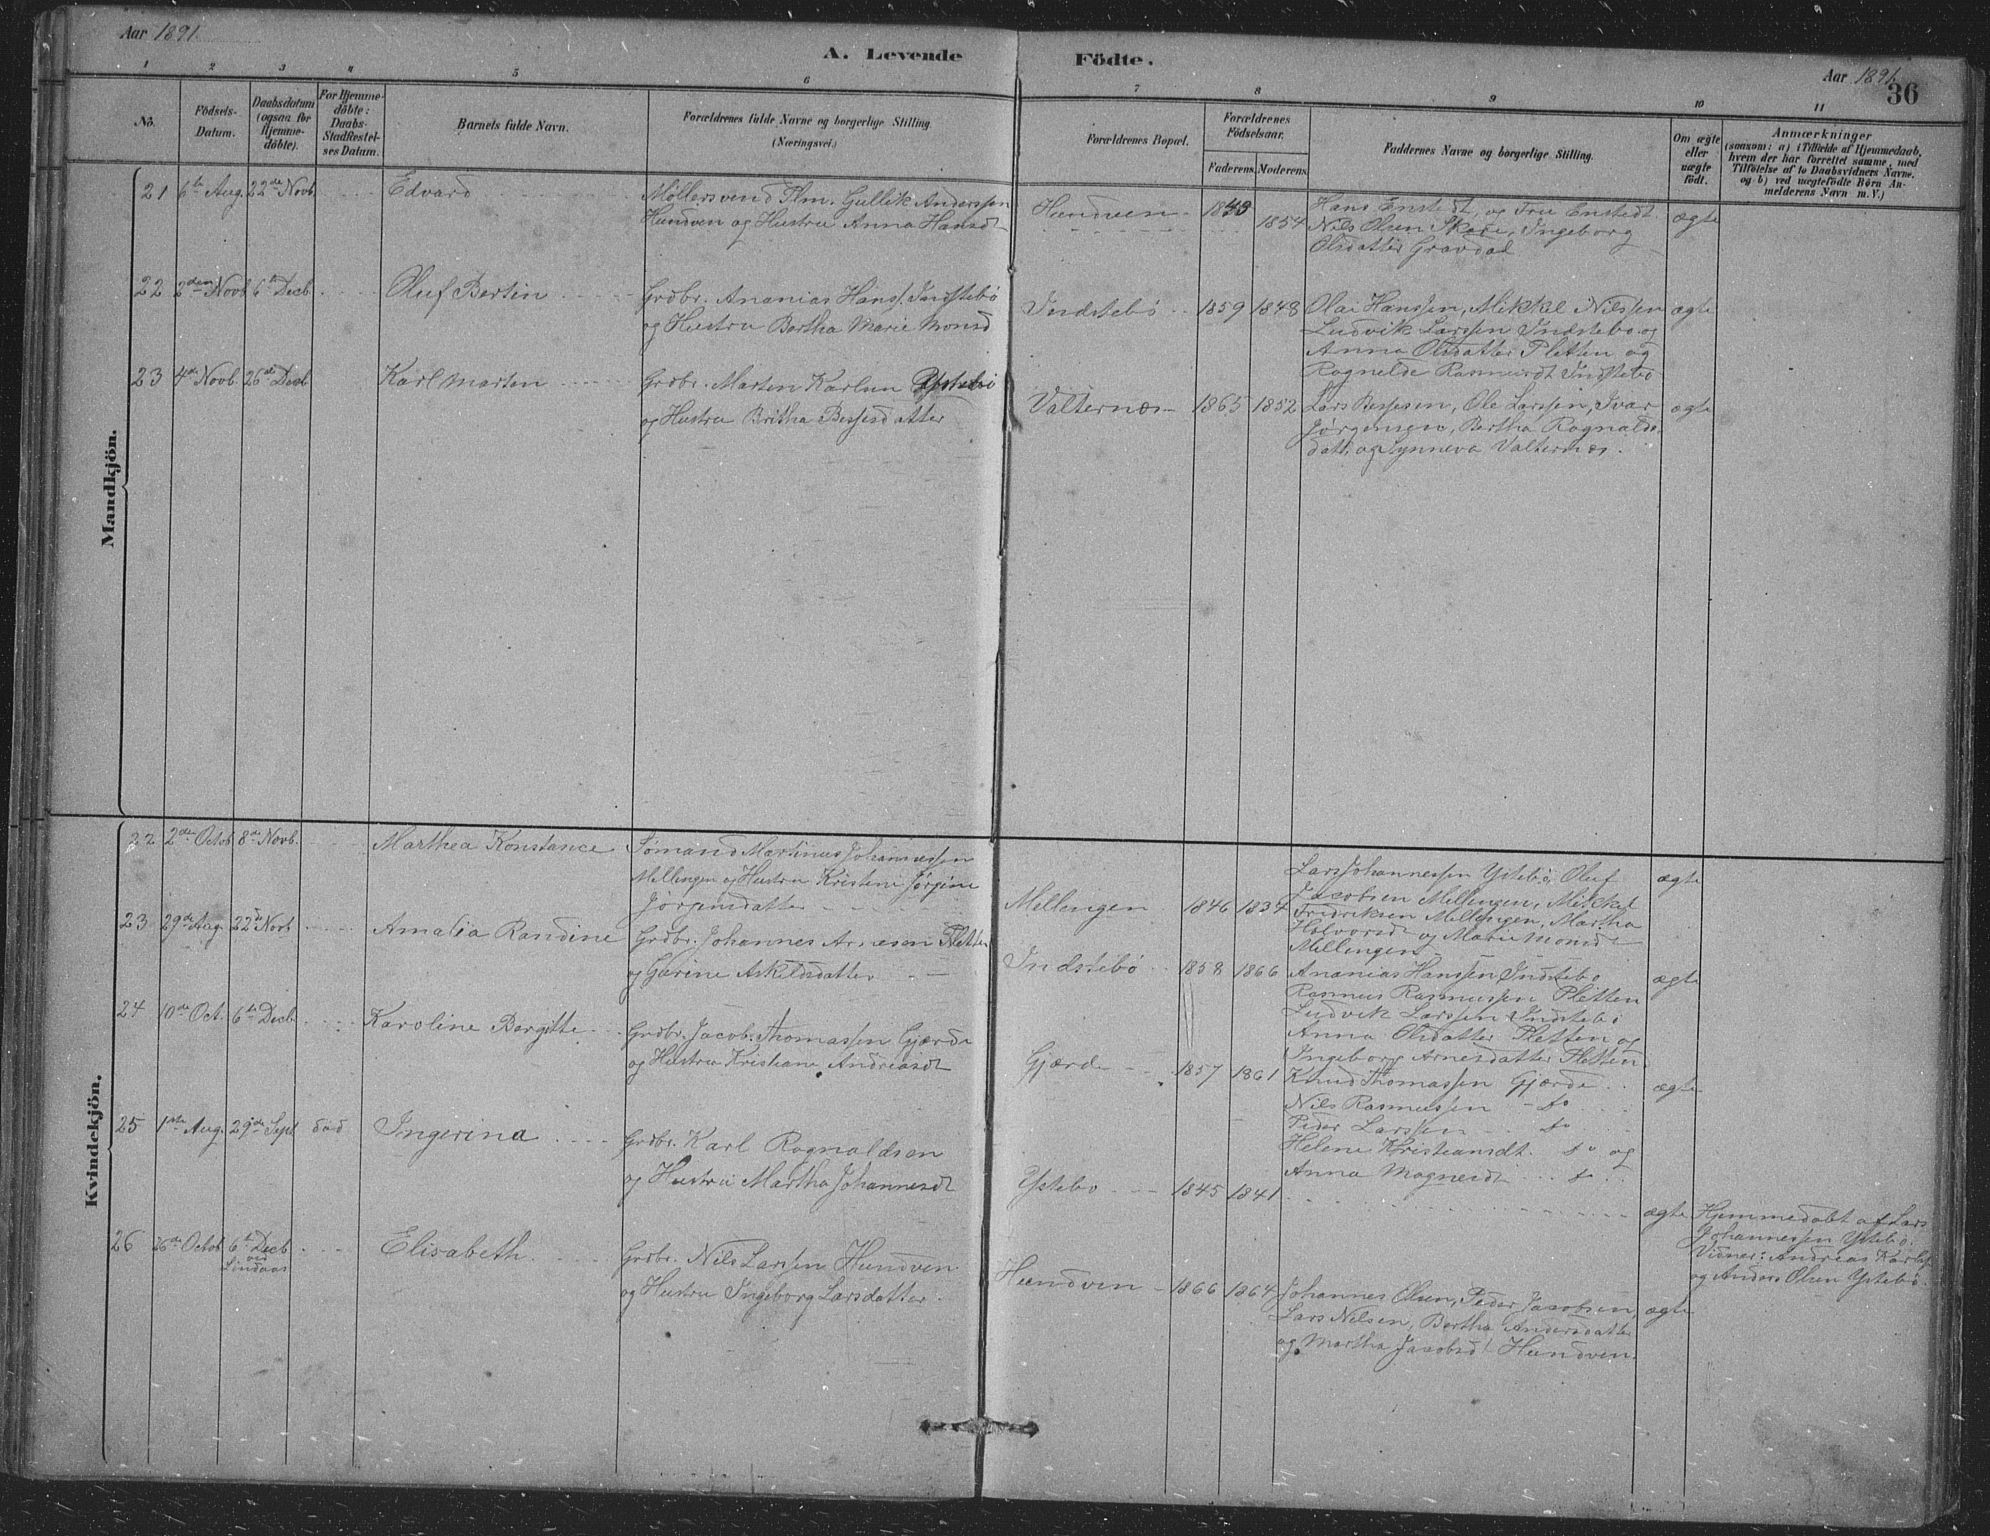 Aar 1891.
A. Levende Födte.
Aar 1891.
36
1 2 3 4 5 6 7 8 9 10 11
No.
Födsels-Datum.
Daabsdatum (ogsaa for Hjemme-döbte).
For Hjemme-döbte: Daabs-Stadfæstel-ses Datum.
Barnets fulde Navn.
Forældrenes fulde Navne og borgerlige Stilling (Næringsvei.)
Forældrenes Bopæl.
Forældrenes Födselsaar.
Faderens. Moderens.
Faddernes Navne og borgerlige Stilling.
Om ægte eller uægte födt.
Anmærkninger
(saasom: a) i Tilfælde af Hjemmedaab,
hvem der har forrettet samme, med
Tilföielse af to Daabsvidners Navne,
og b) ved uægtefödte Börn An-
melderens Navn m. V.)
Mandkjön.
21 6te Aug. 22de Novb. Edvard Møllersvend Flm. Gullik Anderssen
Hundven og Hustru Anna Hansdt
Hundven 1843 1854
Hans Enstedt, og Fru Enstedt
Nils Olsen Skare, Ingeborg
Olsdatter Gravdal
ægte
22 2den Novb 6te Decb Oluf Bertin Grdbr. Ananias Hanss. Indstebö
og Hustru Bertha Marie Monsd
Indstebö 1859 1848
Olai Hanssen, Mikkel Nilssen
Ludvik Larssen Indstebo og
Anna Olsdatter Pletten og
Ragnelde Rasmusdt Indstebo
ægte
23 4de Novb. 26de Decb Karl Marten Grdbr. Marten Karlsen Ystebö
og Hustru Britha Bessesdatter
Valternæs 1865 1852
Lars Bessesen, Ole Larssen, Ivar
Jørgensen, Bertha Ragnalds-
datt. og Synneva Valternæs.
ægte
Kvindekjön.
22 2den Octob 8de Novb. Marthea Konstance Sømand Martinus Johannessen
Mellingen og Hustru Kristeni Jørgine
Jørgensdatter
Mellingen 1846 1834
Lars Johannessen Ystebö, Oluf
Jacobsen Mellingen, Mikkel
Fredriksen Mellingen, Martha
Halvorsdt og Marie Monsdt
Mellingen
ægte
23 29de Aug. 22de Novb Amalia Randine Grdbr. Johannes Arnesen Pletten
og Gurine Askeldsdatter
Indstebö 1858 1866
Ananias Hanssen Indstebo
Rasmus Rasmussen Pletten
Ludvik Larssen Indstebö
Anna Olsdatter Pletten og
Ingeborg Arnesdatter Pletten
ægte
24 10de Oct. 6te Decb Karoline Borgitte Grdbr. Jacob Thomassen Gjærde
og Hustru Kristiane Andreasdt
Gjærde 1857 1861
Knud Thomassen Gjærde
Nils Rasmussen - do
Peder Larssen - do
Helene Kristiansdt. do og
Anna Magnesdt do
ægte
25 1ste Aug. 29de Sept död Ingerina Grdbr. Karl Ragnaldsen
og Hustru Martha Johannesdt
Ystebo 1845 1841
ægte
Hjemmedöbt af Lars
Johannessen Ystebö.
Vidner: Andreas Karls.
og Anders Olsen Ystebö.
26 26de Octob 6te Decb ved Lindaas Elisabeth Grdbr. Nils Larssen Hundven
og Hustru Ingeborg Larsdatter.
Hundven 1866 1864
Johannes Olsen, Peder Jacobsen
Lars Nilsen, Bertha Andersdatter
og Martha Jacobsdt Hundven.
ægte